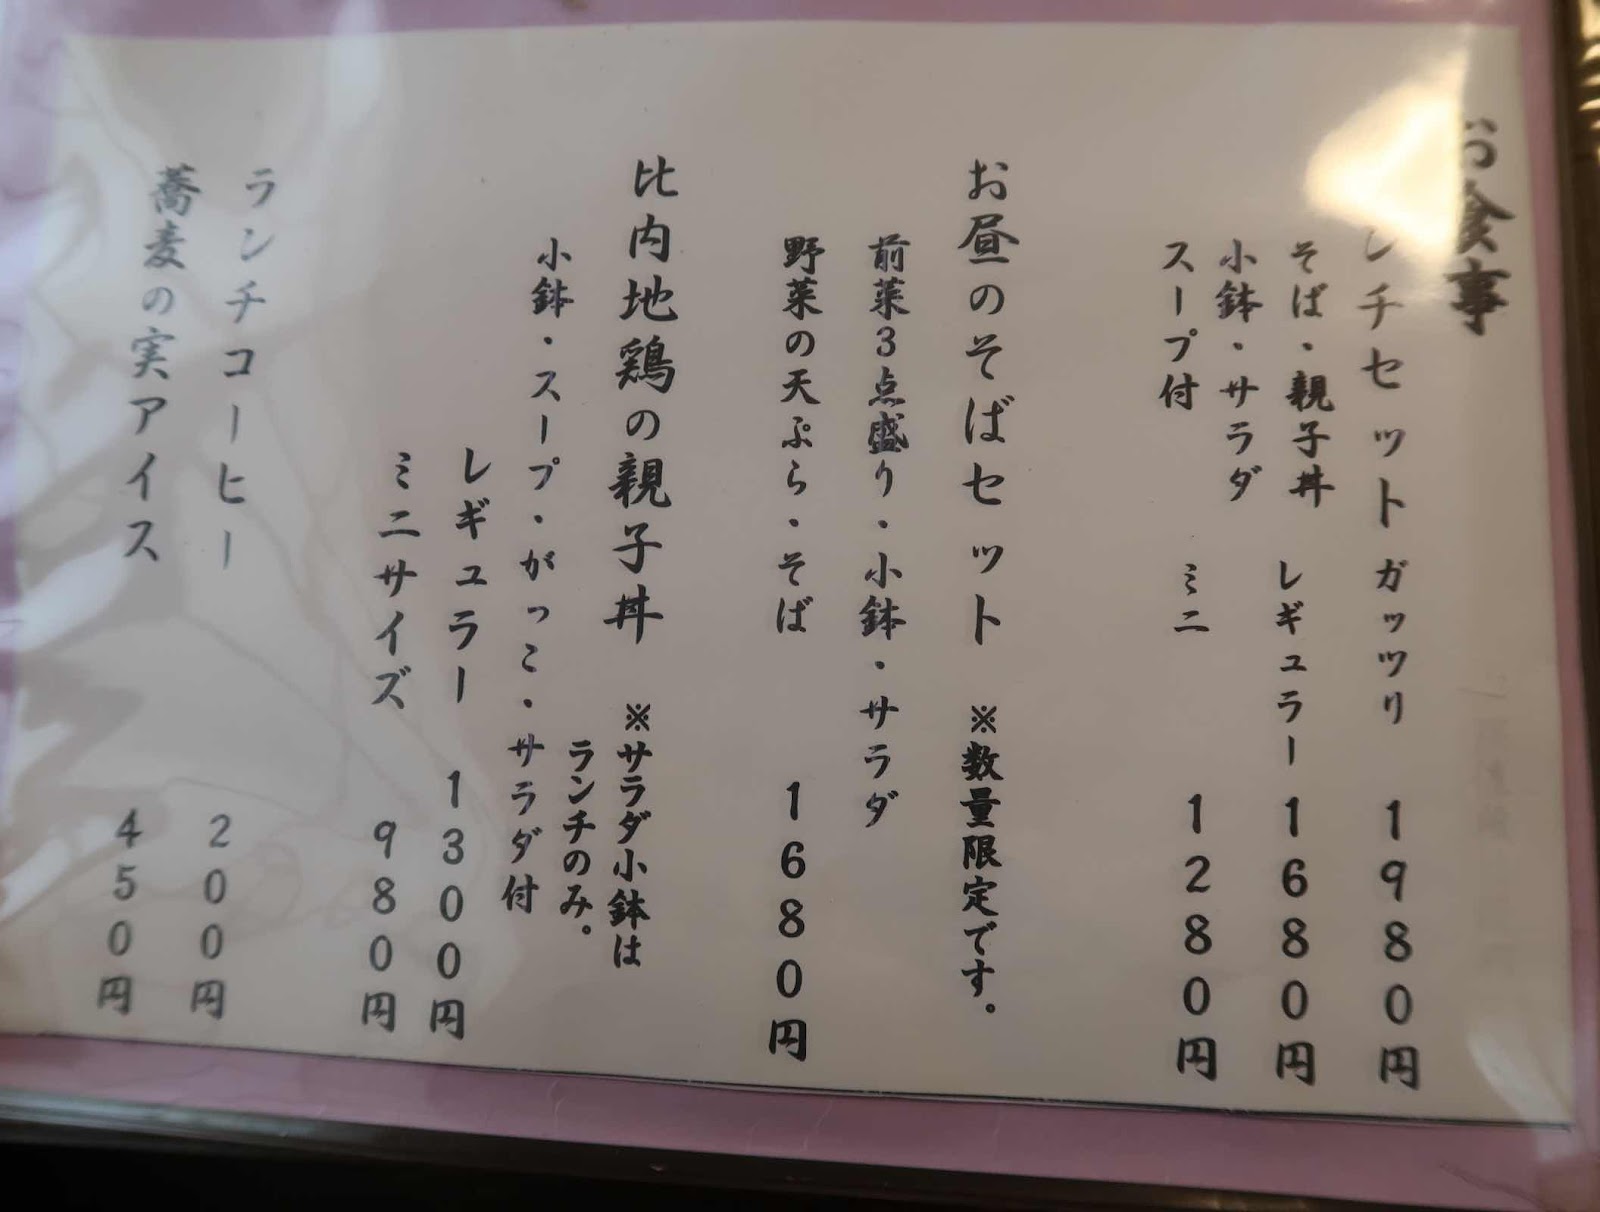 お食事
ンチセットガッツリ 1980円
そば・親子丼 レギュラー 1680円
小鉢・サラダ
スープ付 ミニ 1280円
お昼のそばセット ※数量限定です。
前菜3点盛り・小鉢・サラダ
野菜の天ぷら・そば 1680円
比内地鶏の親子丼 ※サラダ小鉢は
ランチのみ。
小鉢・スープ・がっこ・サラダ付
レギュラー 1300円
ミニサイズ 980円
ランチコーヒー 200円
蕎麦の実アイス 450円